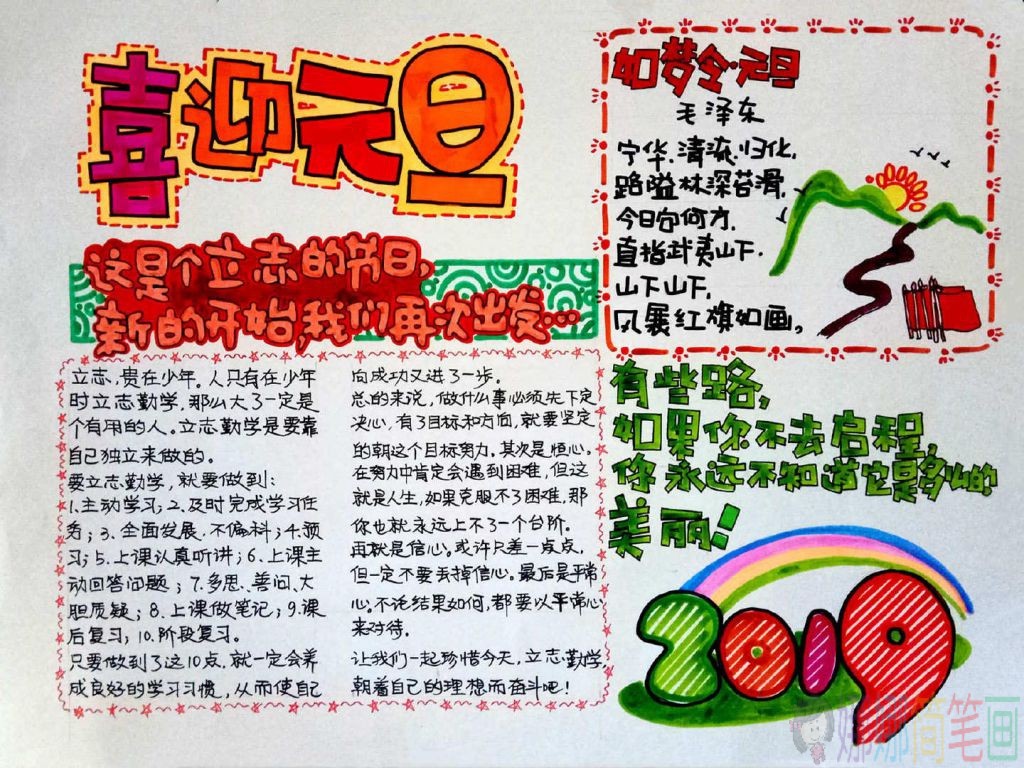 喜迎元旦
这是个立志的节日,
新的开始,我们再次出发…
立志,贵在少年。人只有在少年
时立志勤学,那么大了一定是
个有用的人。立志勤学是要靠
自己独立来做的。
要立志勤学,就要做到:
1.主动学习;2.及时完成学习任
务;3.全面发展,不偏科;4.预
习;5.上课认真听讲;6.上课主
动回答问题;7.多思、善问、大
胆质疑;8.上课做笔记;9.课
后复习;10.阶段复习。
只要做到了这10点,就一定会养
成良好的学习习惯,从而使自己
向成功又进了一步。
总的来说,做什么事必须先下定
决心,有了目标和方向,就要坚定
的朝这个目标努力。其次是恒心。
在努力中肯定会遇到困难,但这
就是人生,如果克服不了困难,那
你也就永远上不了一个台阶。
再就是信心。或许只差一点点,
但一定不要丢掉信心。最后是平常
心。不论结果如何,都要以平常心
来对待。
让我们一起珍惜今天,立志勤学,
朝着自己的理想而奋斗吧!
如梦令·元旦
毛泽东
宁化、清流、归化,
路隘林深苔滑,
今日向何方,
直指武夷山下.
山下山下,
风展红旗如画。
有些路,
如果你不去启程,
你永远不知道它是多么的
美丽!
2019
娜娜简笔画